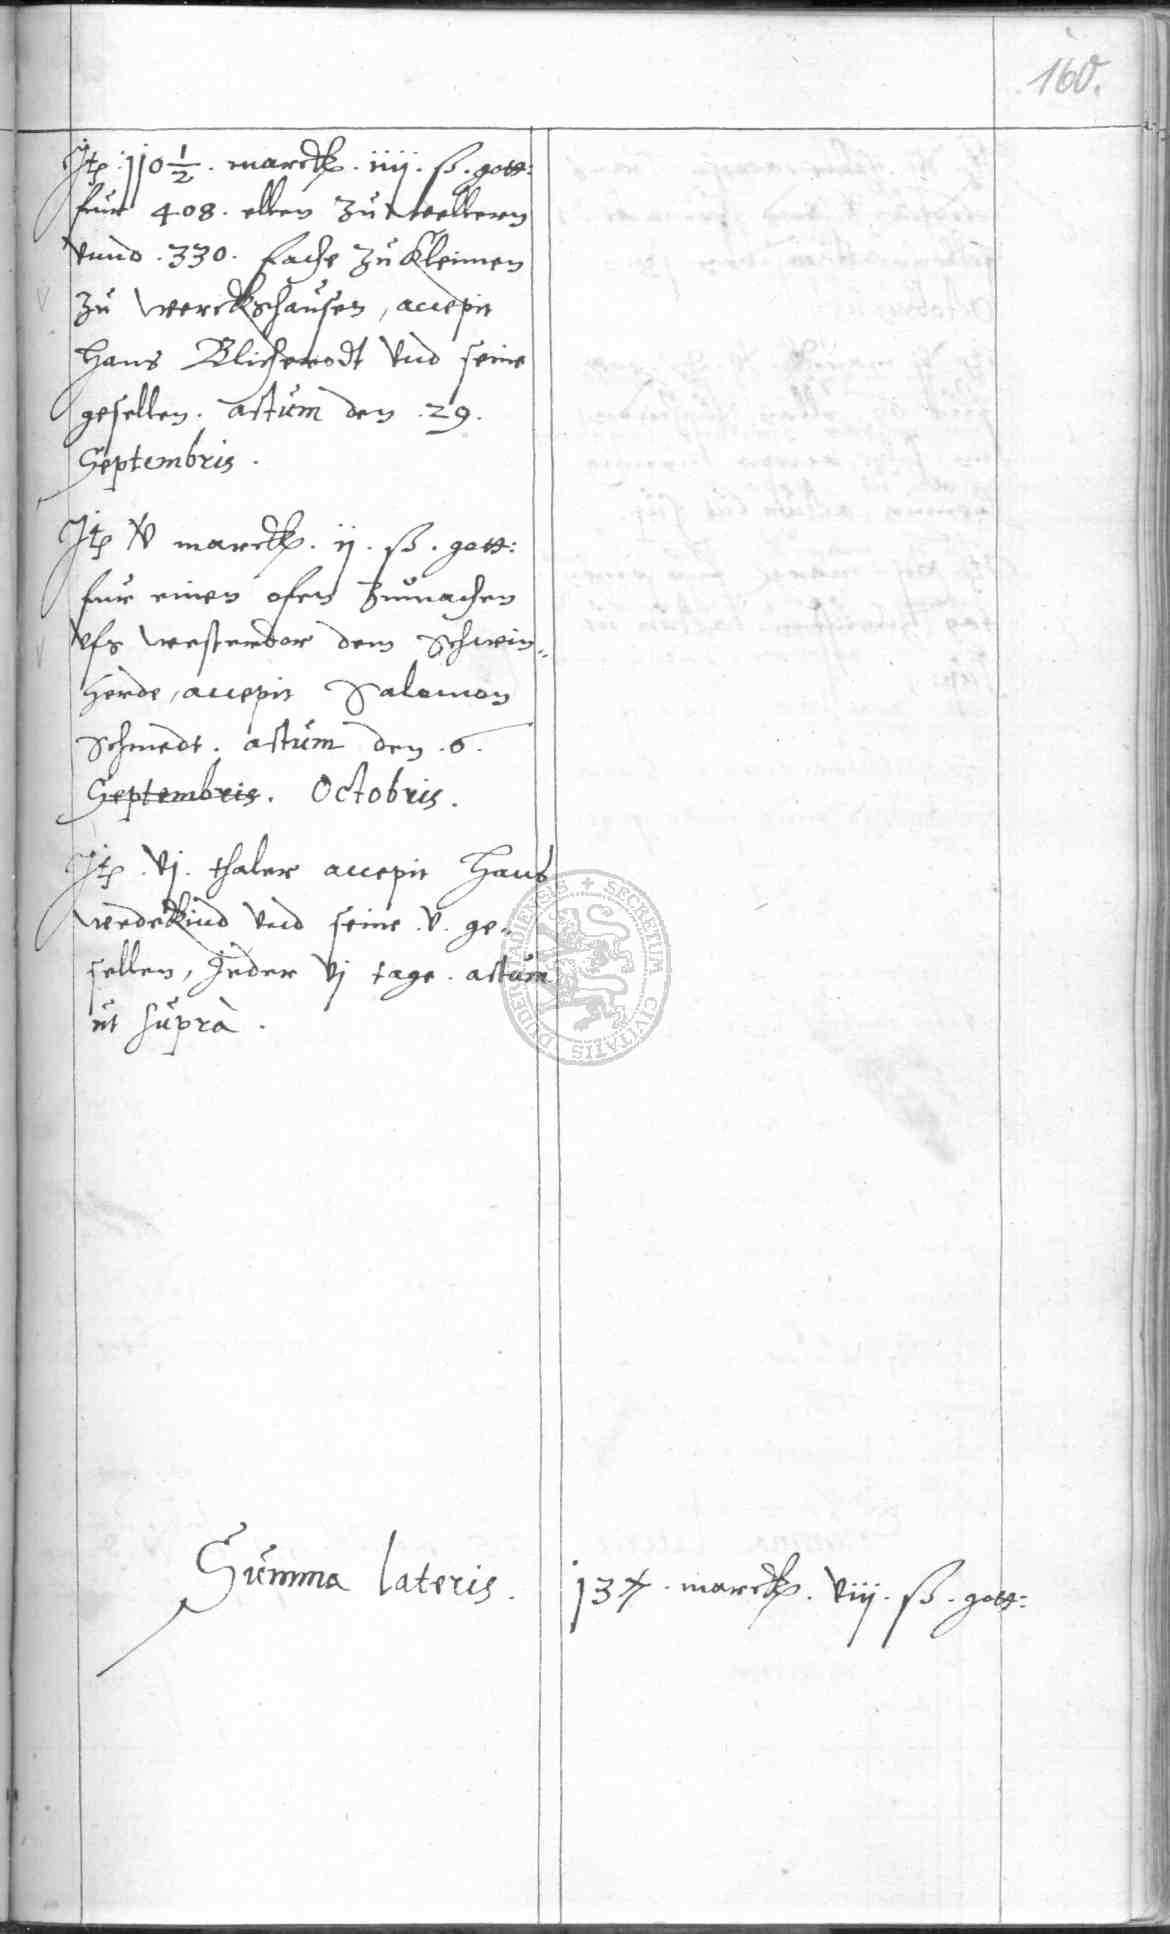 160.
Itp. jj0 1/2. marck. iiij. ß. gott:
fur 408. ellen zu wellern
vnnd .330. fache zu Kleimen
zu Werckshausen, accepit
Hans Blicherodt vnd seine
gesellen. actum den .29.
Septembris.
Itp v marck. ij. ß. gott:
fur einen ofen zumachen
vfs westerdor dem Schwein-
herde, accepit Salomon
Schmedt. actum den .6.
Septembris. Octobris.
Itp. vj. thaler accepit Hans
Wedekind vnd seine .v. ge-
sellen, Jeder vj tage. actum
ut supra.
SECRETUM CIVITATIS DUDERSTADIENSIS
Summa lateris. j34. marck. viij. ß. gott: